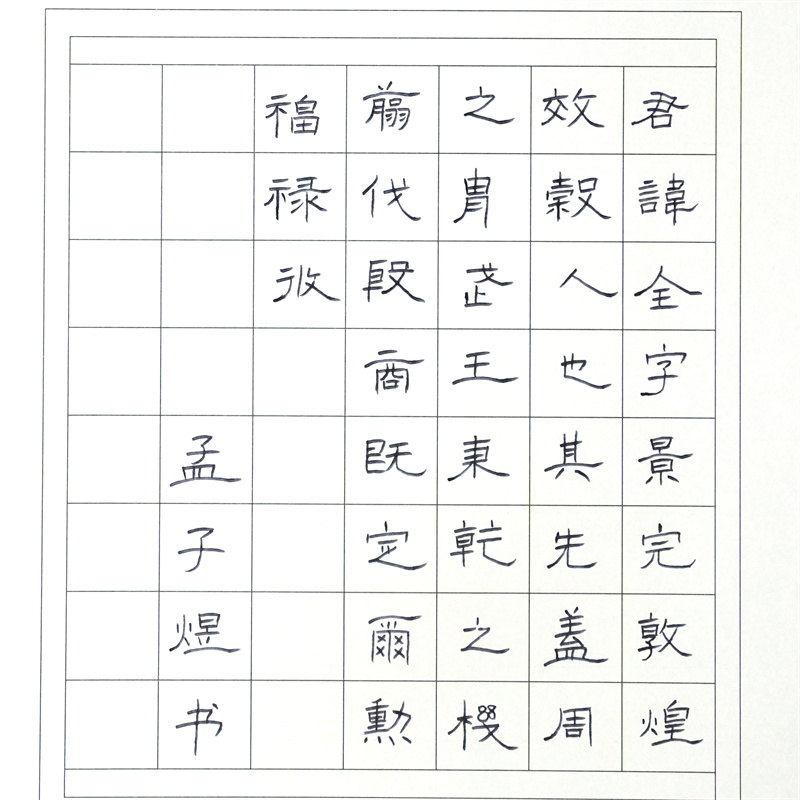 君諱全字景完敦煌
效穀人也其先盖周
之胄武王秉乾之機
翦伐殷商既定爾勳
福禄攸
孟子煜书